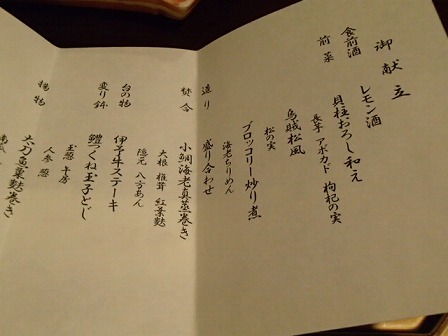 御献立
食前酒 レモン酒
前菜 貝柱おろし和え
長芋 アボカド 枸杞の実
烏賊松風
松の実
ブロッコリー炒り煮
海老ちりめん
造り 盛り合わせ
焚合 小鯛海老真蒸巻き
大根 椎茸 紅葉麩
隠元 八方あん
台の物 伊予牛ステーキ
変り鉢 鱧つくね玉子とじ
玉葱 牛房
人参 葱
揚物 太刀魚粟麩巻き